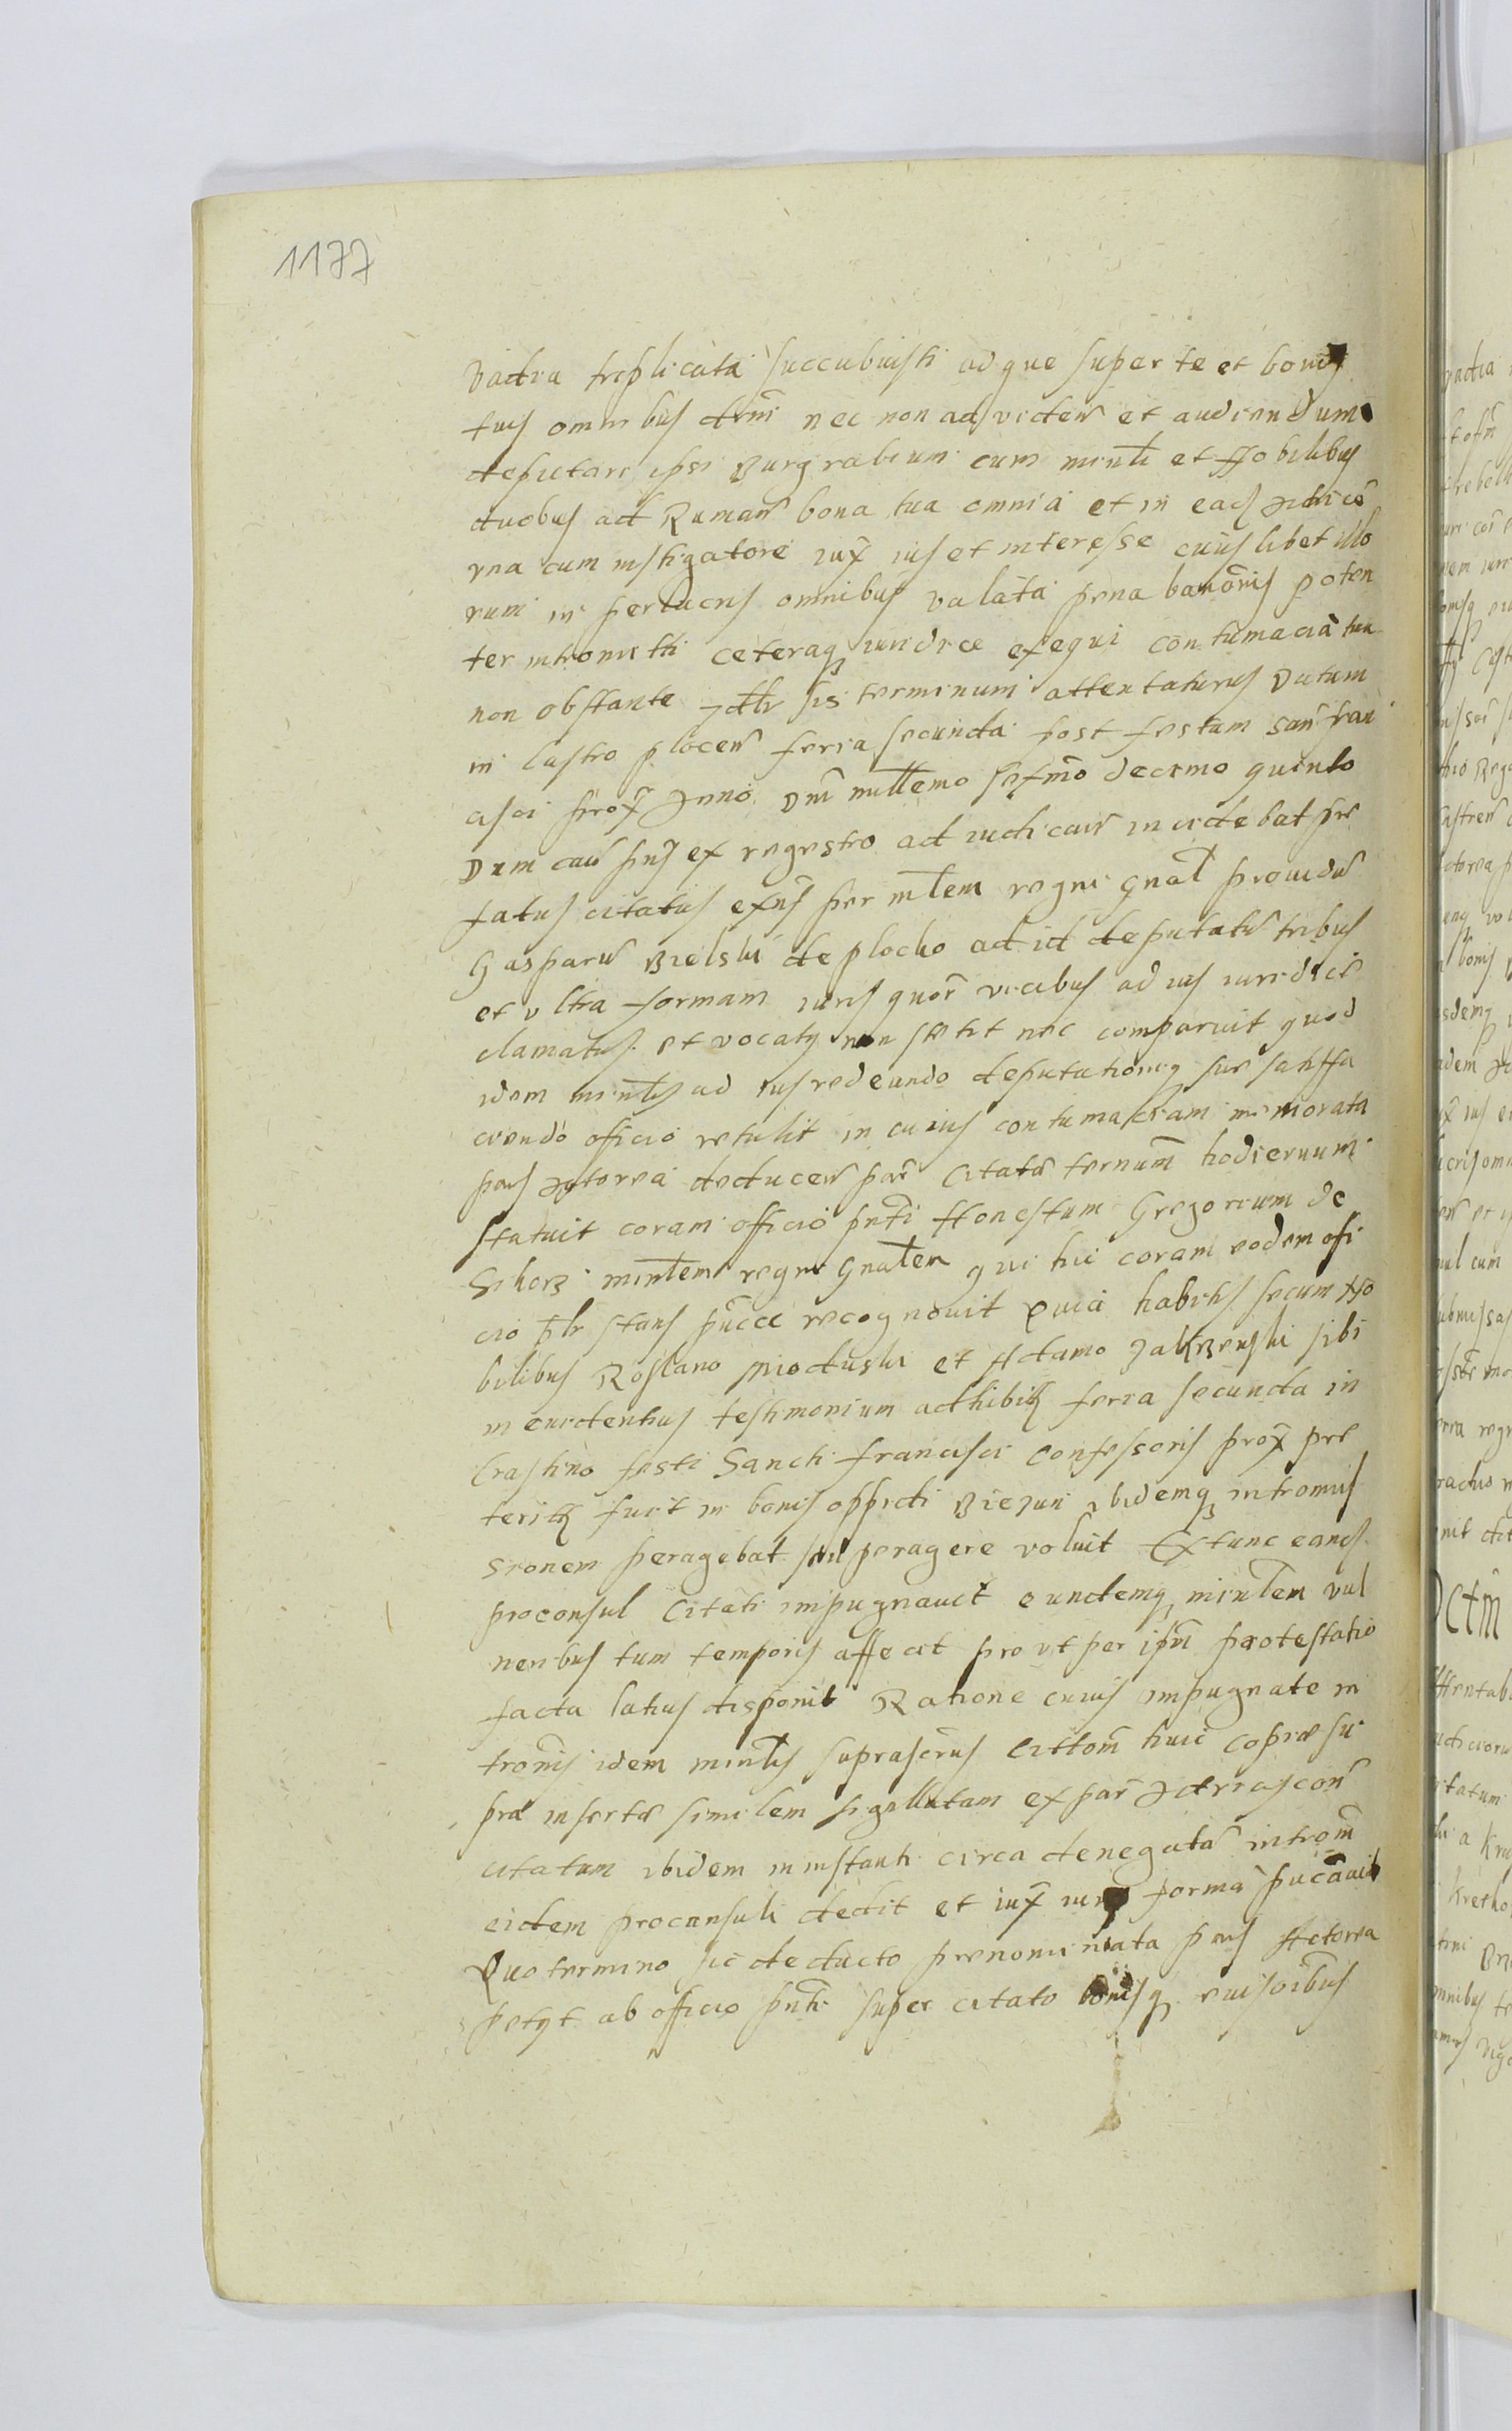 1177
vadia triplicata succubuisti adque super te et bonis
tuis omnibus dcrni nec non ad viden et audiendum
deputari ipsi Burgrabium cum minli et Nobilibus
duobus ad Ruman bona tua omnia et in eas
vna cum instigatore iux ius et interesse cuiuslibet illo
rum in perlucris omnibus valata pena banōnis poten
ter intromitti ceteraq iuridice exequi contumacia tua
non obstante sis terminum attentaturus Datum
in Castro plocen feria secunda post festum san fran
cisci prox Anno Dni millemo sexmo decimo quinto
Dum cau pns ex regestro ad iudican incidebat pre
fatus citatus exns per mlem regni gnal prouidu
Gasparu Bielski de plocko ad id deputatu tribus
et vltra formam iuris quor vicibus ad ius iuridice
clamatus et vocatq non stetit nec comparuit quod
idem minlis ad ius redeundo deputationiq sue satisfa
ciendo officio retulit in cuius contumaciam memorata
pars Actorea deducen par citata ternum hodiernum
statuit coram officio pnti Honestum Gregorium de
Sikorz minlem regni Gnalem qui hic coram eodem offi
cio plr stans puce recognouit Quia habitis secum No
bilibus Roslano Mioduski et Adamo Zakrzeuski sibi
in euidentius testimonium adhibitis feria secunda in
Crastino festi Sancti francisci Confessoris prox pre
teritis fuit in bonis oppidi Biezun ibidemq intromis
sionem peragebat seu peragere voluit Extunc eand
proconsul Citati impugnauit eundemq minlem vul
neribus tum temporis affecit prout per ipm protestatio
facta latius disponit Ratione cuius impugnate in
tromis idem minlis suprascrius cittom huic copiæ su
pra insertæ similem sigillatam ex par
citatam ibidem in instanti circa denegata introm
eidem proconsuli dedit et iux iuris forma pucauit
Quo termino sic deducto prenominata pars Actorea
petyt ab officio pnti super citato bonisq euisoibus